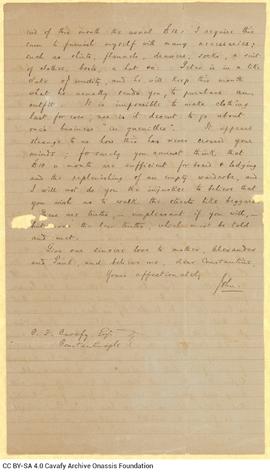 end of this month the usual £10: I require this
sum to furnish myself with many necessaries;
such as shirts, flannels, drawers, socks, a suit
of clothes, boots, a hat &c. Peter is in a like
state of nudity, and he will keep this month
what he usually sends you, to purchase an
outfit. It is impossible to make clothing
last for ever; nor is it decent to go about
one's business "en guenilles". It appears
strange to us how this has never crossed your
minds; for surely you cannot think, that
£10 a month are sufficient for board & lodging
and the replenishing of an empty wardrobe, and
I will not do you the injustice to believe that
you wish us to walk the streets like beggars.
These are truths, — unpleasant if you will, —
but the truths, which must be told
and met.
Give our sincere love to mother, Alexander
and Paul, and believe me, dear Constantine,
Yours affectionately
John.
C. F. Cavafy Esq.
Constantinople
CC BY-SA 4.0 Cavafy Archive Onassis Foundation